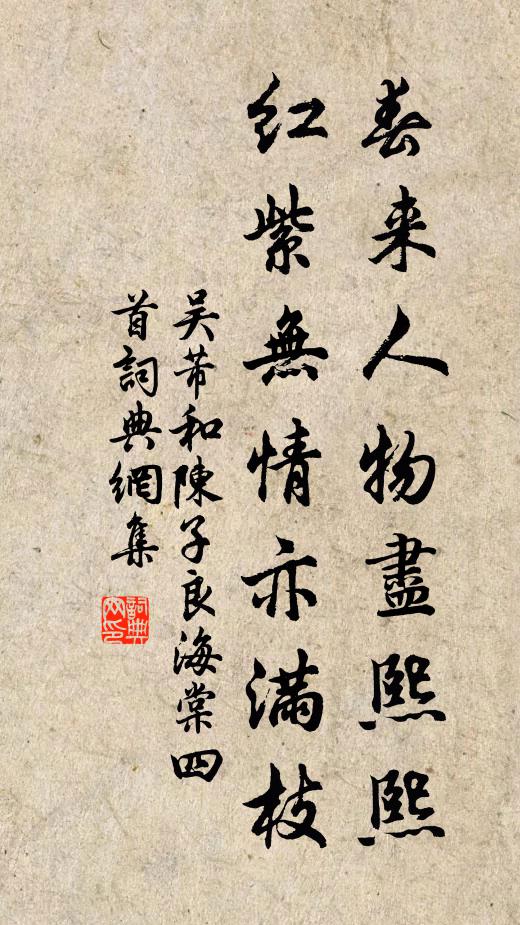 春来人物盡熙熙
紅紫無情亦滿枝
吴芾和陳子良海棠四
首詞典網集
詞典網印